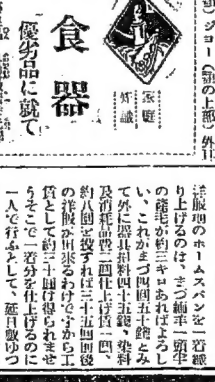 ジヨー(頭の上部)外口
家庭
知識
食器
優劣品に就て
洋服地のホームスパン一着織
り上げるのは、まづ緬羊一頭半
の緬毛が約三キロあればよろし
い、これがまづ四圓五十錢とみ
て外に器具損料四十五錢、染料
及消耗品費二圓仕上げ賃一圓、
約八圓を投ずれば三十五圓前後
の洋服が出來るわけですから工
賃として約三十圓は得られませ
うそこで一着分を仕上げるのに
一人で行ふとして、延日數ゆつ